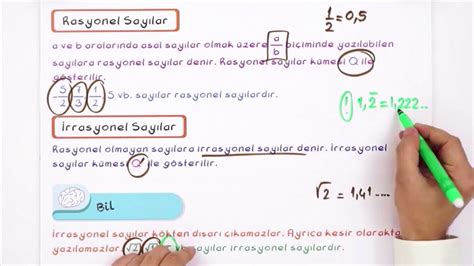 Rasyonel Sayılar
1/2 = 0,5
a ve b aralarında asal sayılar olmak üzere a/b biçiminde yazılabilen
sayılara rasyonel sayılar denir. Rasyonel sayılar kümesi Q ile
gösterilir.
5/2 7/3 1/2 5 vb. sayılar rasyonel sayılardır.
1,2̅ = 1,222...
İrrasyonel Sayılar
Rasyonel olmayan sayılara irrasyonel sayılar denir. İrrasyonel
sayılar kümesi Q' ile gösterilir.
√2 = 1,41....
Bil
İrrasyonel sayılar kökten dışarı çıkamazlar. Ayrıca kesir olarakta
yazılamazlar. √2 vb. sayılar irrasyonel sayılardır.